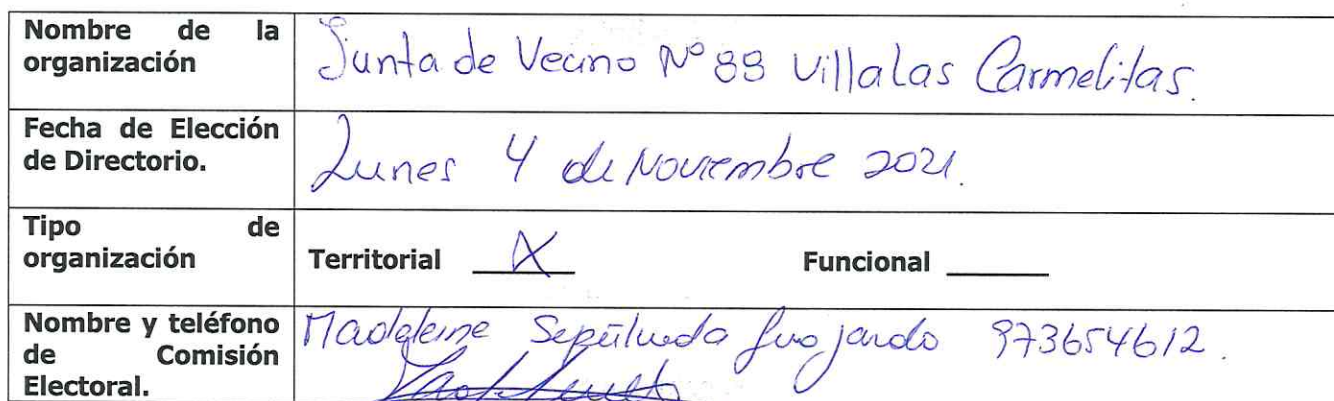 Nombre de la
organización
Junta de Vecino Nº 88 Villa las Carmelitas.
Fecha de Elección
de Directorio.
Lunes 4 de Noviembre 2021.
Tipo de
organización
Territorial X Funcional
Nombre y teléfono
de Comisión
Electoral.
Madeleine Sepúlveda 973654612.